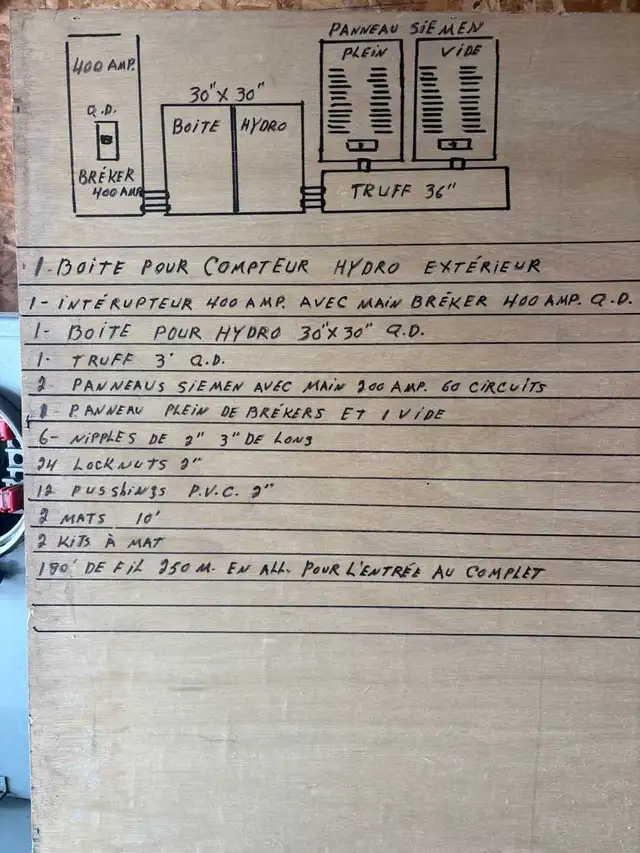 PANNEAU SIEMEN
400 AMP.
Q.D.
BRÉKER
400 AMP.
30" X 30"
BOITE HYDRO
PLEIN
VIDE
TRUFF 36"
1- BOITE POUR COMPTEUR HYDRO EXTÉRIEUR
1- INTÉRUPTEUR 400 AMP. AVEC MAIN BRÉKER 400 AMP. Q.D.
1- BOITE POUR HYDRO 30"X30" Q.D.
1- TRUFF 3' Q.D.
2- PANNEAUS SIEMEN AVEC MAIN 200 AMP. 60 CIRCUITS
PANNEAU PLEIN DE BRÉKERS ET 1 VIDE
6- NIPPLES DE 2" 3" DE LONG
24 LOCKNUTS 2"
12 PUSSHINGS P.V.C. 2"
2 MATS 10'
2 KITS À MAT
DE FIL 250 M. EN ALL. POUR L'ENTRÉE AU COMPLET